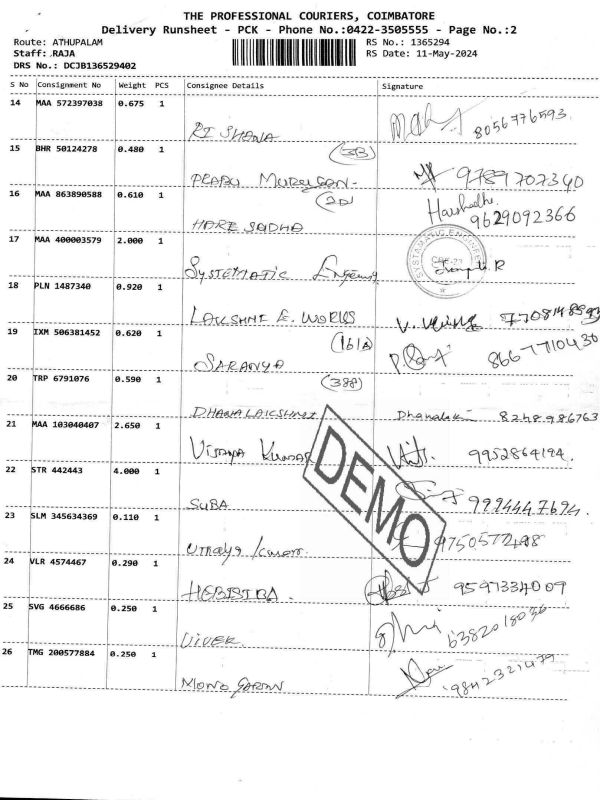 THE PROFESSIONAL COURIERS, COIMBATORE
Delivery Runsheet - PCK - Phone No.:0422-3505555 - Page No.:2
Route: ATHUPALAM RS No.: 1365294
Staff: RAJA RS Date: 11-May-2024
DRS No.: DCJB136529402
S No Consignment No Weight PCS Consignee Details Signature
14 MAA 572397038 0.675 1
RISHANA 8056776593
15 BHR 50124278 0.480 1 (3B)
PRABU MURUGAN- 9789707340
16 MAA 863890588 0.610 1
HARE SADHA 9629092366
17 MAA 400003579 2.000 1
SYSTEMATIC
18 PLN 1487340 0.920 1
LAKSHMI E. WORKS
19 IXM 506381452 0.620 1 (161A)
SARANYA 8667710430
20 TRP 6791076 0.590 1 (388)
DHANALAKSHMI 8248986763
21 MAA 103040407 2.650 1
VIJAYA KUMAR 9952864194.
22 STR 442443 4.000 1
SUBA 9994447694.
23 SLM 345634369 0.110 1
9750572498
24 VLR 4574467 0.290 1
9597334009
25 SVG 4666686 0.250 1
VIVEK 6382018036
26 TMG 200577884 0.250 1
9842321479
DEMO